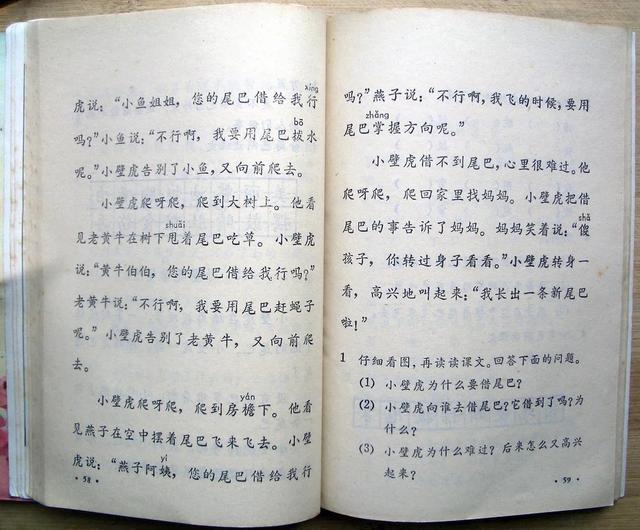 xíng
虎说：“小鱼姐姐，您的尾巴借给我行
bō
吗？”小鱼说：“不行啊，我要用尾巴拨水
呢。”小壁虎告别了小鱼，又向前爬去。
小壁虎爬呀爬，爬到大树上。他看
shuǎi
见老黄牛在树下甩着尾巴吃草。小壁虎
说：“黄牛伯伯，您的尾巴借给我行吗？”
老黄牛说：“不行啊，我要用尾巴赶蝇子
呢。”小壁虎告别了老黄牛，又向前爬
去。
yán
小壁虎爬呀爬，爬到房檐下。他看
见燕子在空中摆着尾巴飞来飞去。小壁
yí
虎说：“燕子阿姨，您的尾巴借给我行
· 58 ·
吗？”燕子说：“不行啊，我飞的时候，要用
zhǎng
尾巴掌握方向呢。”
小壁虎借不到尾巴，心里很难过。他
爬呀爬，爬回家里找妈妈。小壁虎把借
shǎ
尾巴的事告诉了妈妈。妈妈笑着说：“傻
孩子，你转过身子看看。”小壁虎转身一
看，高兴地叫起来：“我长出一条新尾巴
啦！”
1 仔细看图，再读读课文。回答下面的问题。
(1) 小壁虎为什么要借尾巴？
(2) 小壁虎向谁去借尾巴？它借到了吗？为
什么？
(3) 小壁虎为什么难过？后来怎么又高兴
起来？
· 59 ·